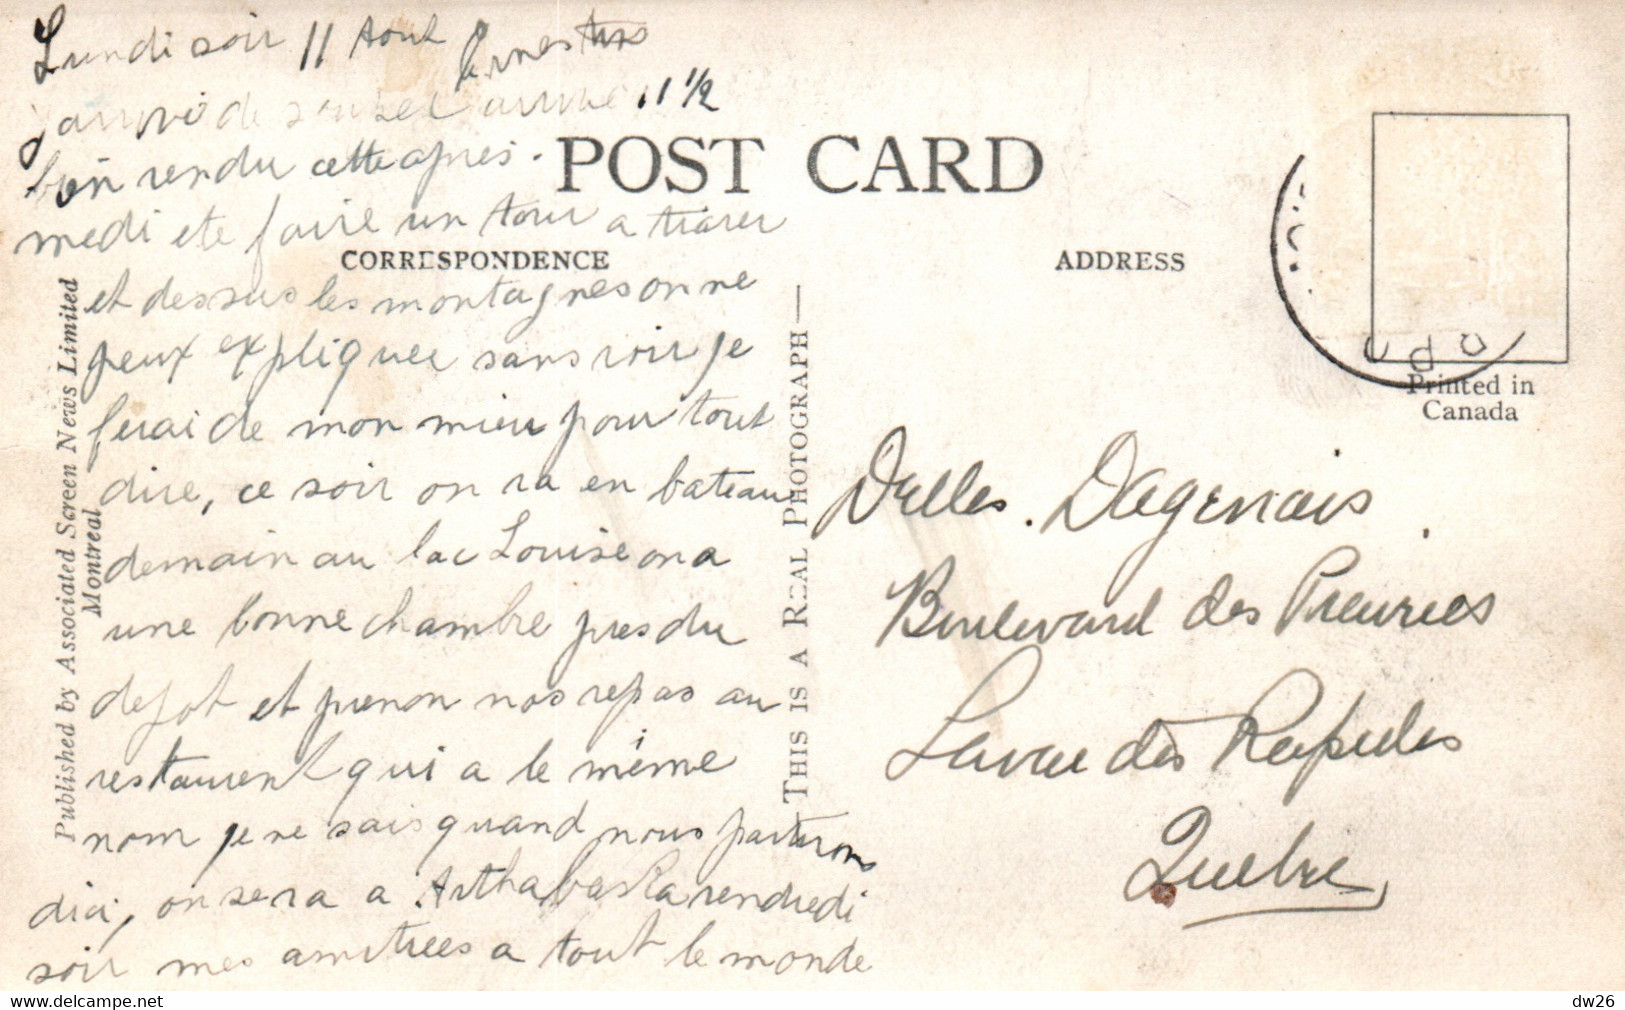 Lundi soir 11 Aout
11 1/2
bien rendu cette apres.
medi ete faire un tour a
et dessus les montagnes on ne
peux expliquer sans voir je
ferai de mon mieu pour tout
dire, ce soir on va en bateau
demain au lac Louise on a
une bonne chambre pres du
depot et prenon nos repas au
restaurent qui a le même
nom je ne sais quand nous partirons
d'ici, on sera a Arthabaska vendredi
soir mes amitiees a tout le monde
POST CARD
CORRESPONDENCE
ADDRESS
Printed in
Canada
Delles. Dagenais
Boulevard des Prairies
Laval des Rapides
Quebec
THIS IS A REAL PHOTOGRAPH —
Published by Associated Screen News Limited
Montreal
delcampe.net
dw26